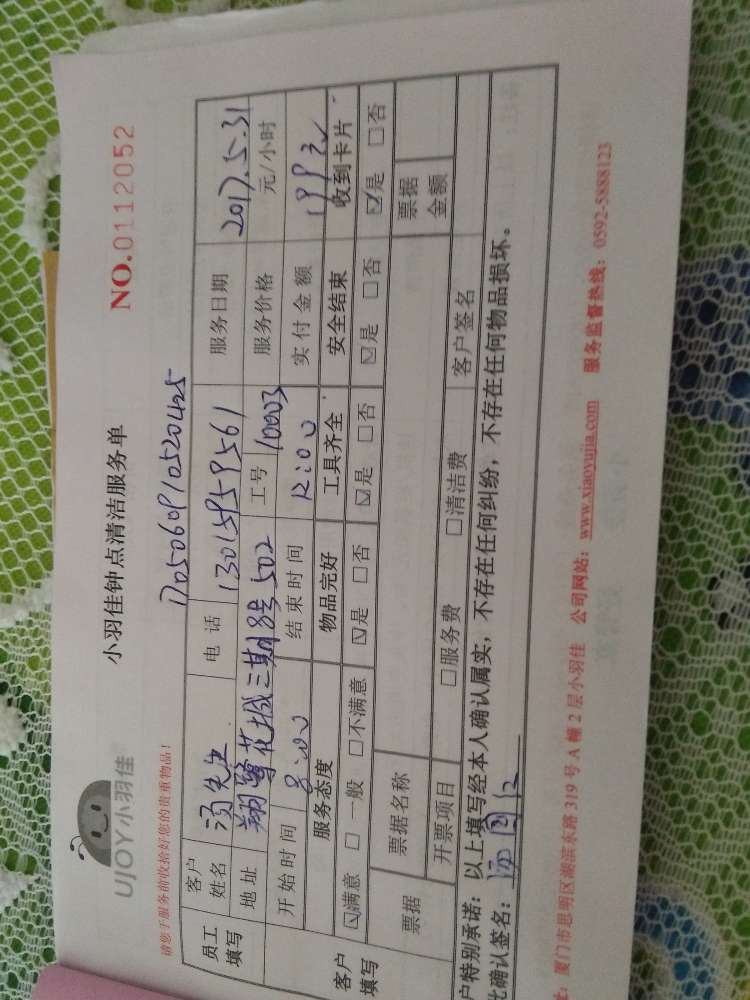 UJOY小羽佳
小羽佳钟点清洁服务单
NO.0112052
请您于服务前收拾好您的贵重物品！
1705060910520425
员工填写 客户姓名 汤先生 电话 13015959561 服务日期 2017.5.31
地址 翔鹭花城三期8号502 工号 10003 服务价格 元/小时
开始时间 8:00 结束时间 12:00 实付金额 199元
客户填写 服务态度 物品完好 工具齐全 安全结束 收到卡片
☑满意 □一般 □不满意 ☑是 □否 ☑是 □否 ☑是 □否 ☑是 □否
票据 票据名称 票据金额
开票项目 □服务费 □清洁费 客户签名
户特别承诺：以上填写经本人确认属实，不存在任何纠纷，不存在任何物品损坏。
此确认签名：
址：厦门市思明区湖滨东路319号A幢2层小羽佳 公司网站：www.xiaoyujia.com 服务监督热线：0592-5888123